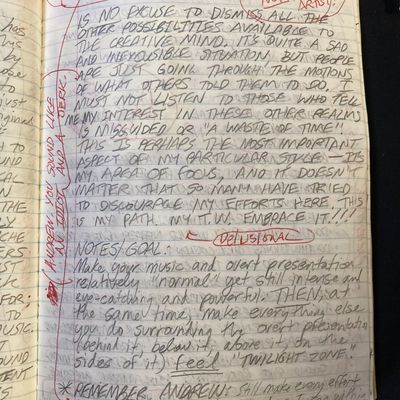 ARTSY.
IS NO EXCUSE TO DISMISS ALL THE
OTHER POSSIBILITIES AVAILABLE TO
THE CREATIVE MIND. IT'S QUITE A SAD
AND INEXCUSIBLE SITUATION BUT PEOPLE
ARE JUST GOING THROUGH THE MOTIONS
OF WHAT OTHERS TOLD THEM TO DO. I
MUST NOT LISTEN TO THOSE WHO TELL
ME MY INTEREST IN THESE OTHER REALMS
IS MISGUIDED OR "A WASTE OF TIME"
THIS IS PERHAPS THE MOST IMPORTANT
ASPECT OF MY PARTICULAR STYLE — IT'S
MY AREA OF FOCUS, AND IT DOESN'T
MATTER THAT SO MANY HAVE TRIED
TO DISCOURAGE MY EFFORTS HERE. THIS
IS MY PATH. MY T.W. EMBRACE IT!!!
DELUSIONAL
NOTES/GOAL:
Make your music and overt presentation
relatively "normal" yet still intense and
eye-catching and powerful. THEN, at
the same time, make everything else
you do surrounding the overt presentation
(behind it, below it, above it, on the
sides of it) feel "TWILIGHT ZONE."
* REMEMBER, ANDREW: Still make every effort
ANDREW, YOU SOUND LIKE
AN IDIOT AND A JERK.
has
his
by
FOR;
TO
MUSIC.